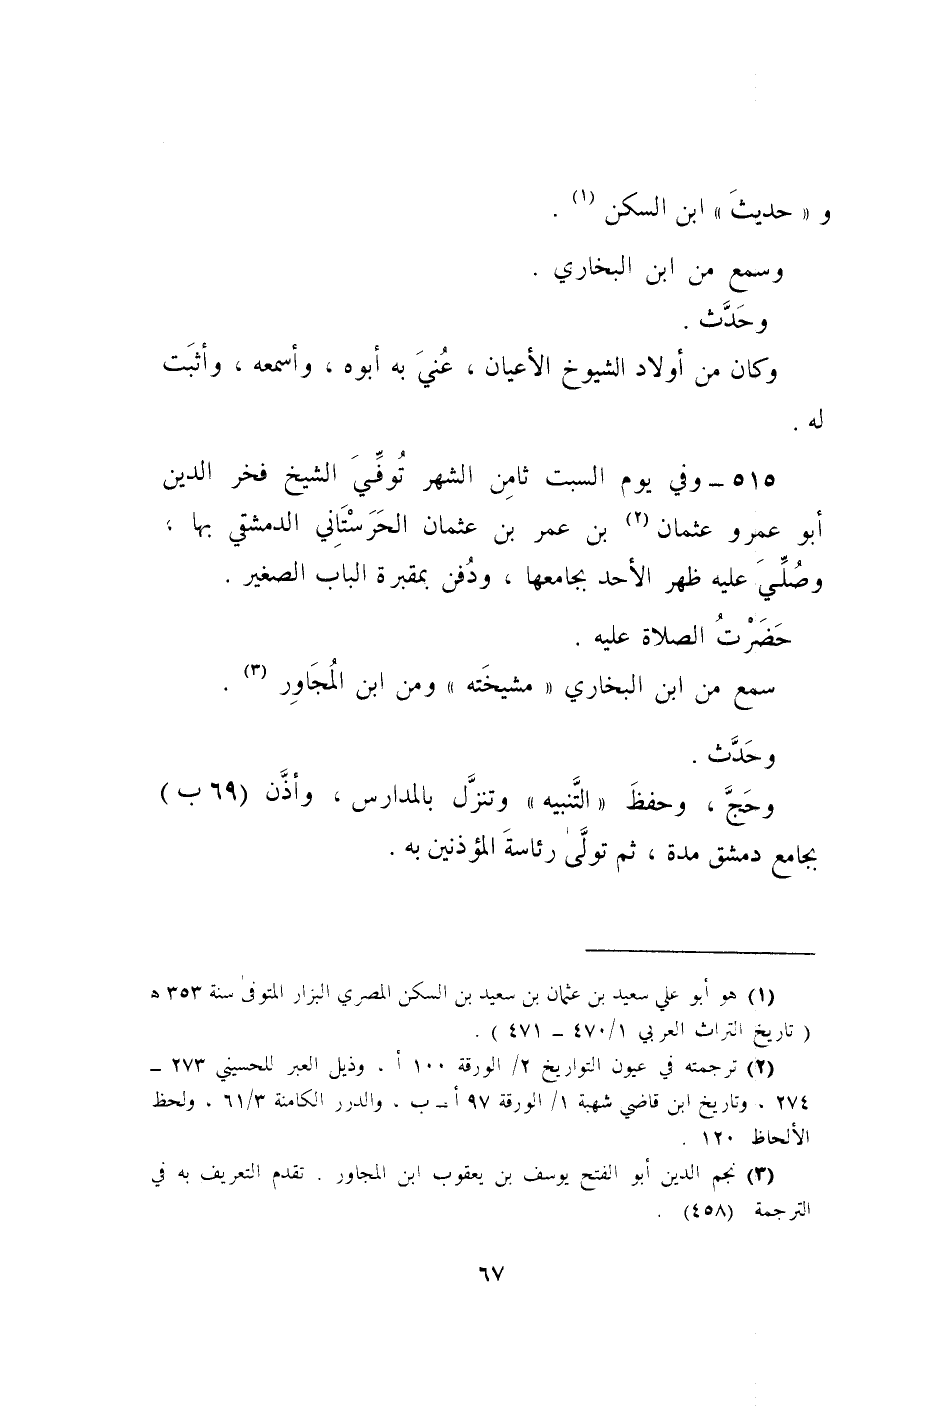 و « حديثَ » ابن السكن (١) .
وسمع من ابن البخاري .
وحَدَّث .
وكان من أولاد الشيوخ الأعيان ، عُنيَ به أبوه ، وأسمعه ، وأثبَت
له .
٥١٥ ـ وفي يوم السبت ثامِن الشهر تُوفِّيَ الشيخ فخر الدين
أبو عمرو عثمان (٢) بن عمر بن عثمان الحَرَسْتَاني الدمشقي بها ،
وصُلِّيَ عليه ظهر الأحد بجامعها ، ودُفن بمقبرة الباب الصغير .
حَضَرْتُ الصلاة عليه .
سمع من ابن البخاري « مشيخَته » ومن ابن المُجَاوِر (٣) .
وحَدَّث .
وحَجَّ ، وحفظَ « التَّنبيه » وتنزَّل بالمدارس ، وأذَّن (٦٩ ب)
بجامع دمشق مدة ، ثم تولَّىٰ رئاسةَ المؤذنين به .
(١) هو أبو علي سعيد بن عثمان بن سعيد بن السكن المصري البزار المتوفىٰ سنة ٣٥٣ ه
( تاريخ التراث العربي ٤٧٠/١ ـ ٤٧١ ) .
(٢) ترجمته في عيون التواريخ ٢/ الورقة ١٠٠ أ ، وذيل العبر للحسيني ٢٧٣ ـ
٢٧٤ ، وتاريخ ابن قاضي شهبة ١/ الورقة ٩٧ أ ـ ب ، والدرر الكامنة ٦١/٣ ، ولحظ
الألحاظ ١٢٠ .
(٣) نجم الدين أبو الفتح يوسف بن يعقوب ابن المجاور . تقدم التعريف به في
الترجمة (٤٥٨) .
٦٧